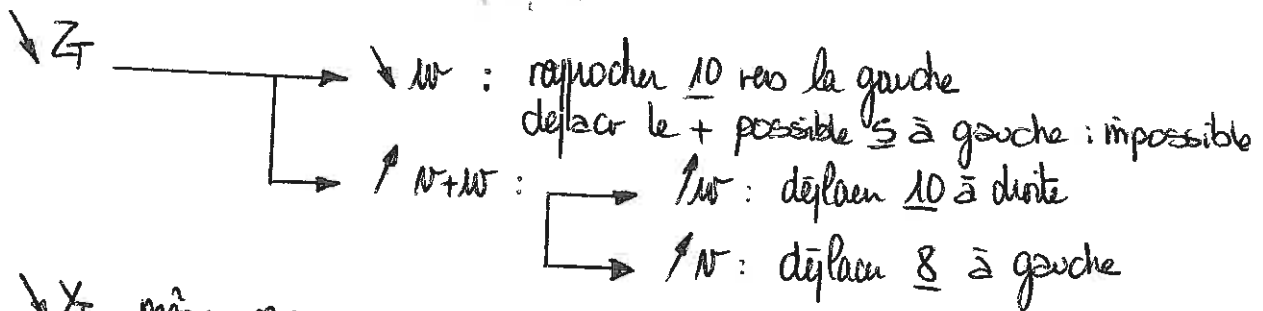 ↘ Z_T → ↘ w : rapprocher 10 vers la gauche
déplacer le + possible 5 à gauche : impossible
→ ↗ v+w : → ↗ w : déplacer 10 à droite
→ ↗ v : déplacer 8 à gauche
↘ Y_T